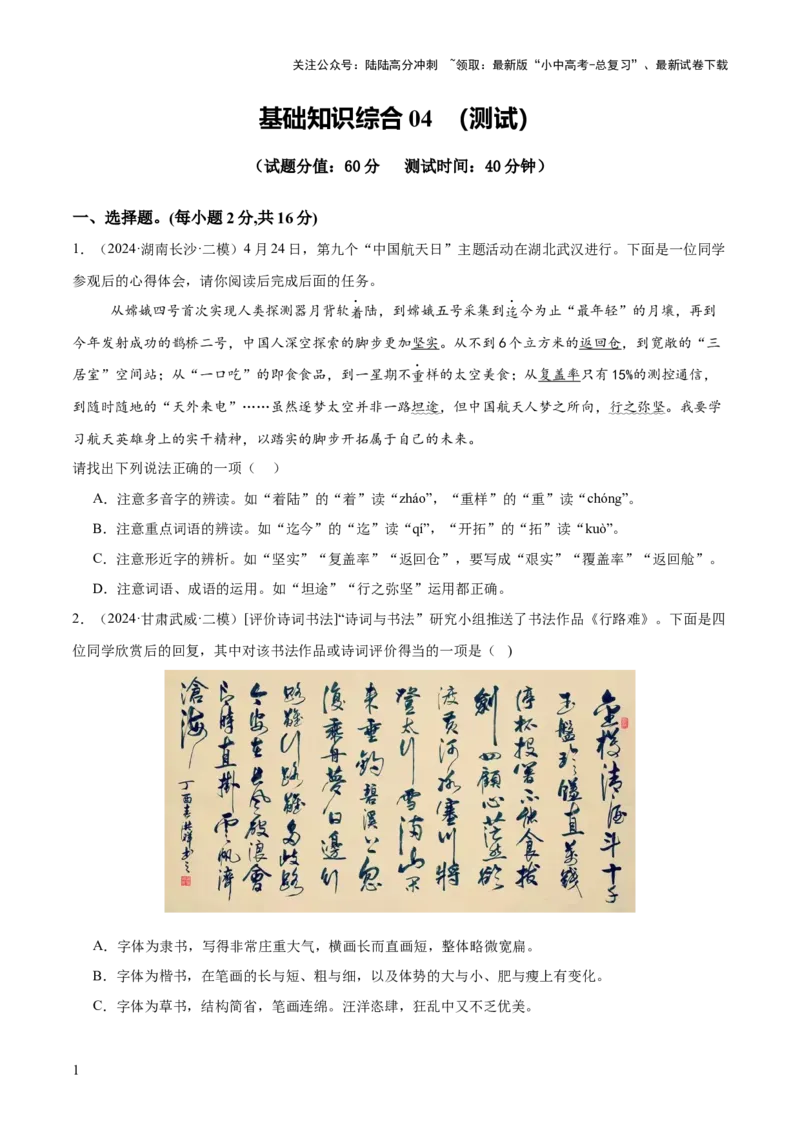 关注公众号：陆陆高分冲刺 ~领取：最新版“小中高考-总复习”、最新试卷下载
基础知识综合 04 （测试）
（试题分值：60 分 测试时间：40 分钟）
一、选择题。(每小题 2 分,共 16 分)
1．（2024·湖南长沙·二模）4 月 24 日，第九个“中国航天日”主题活动在湖北武汉进行。下面是一位同学
参观后的心得体会，请你阅读后完成后面的任务。
从嫦娥四号首次实现人类探测器月背软着陆，到嫦娥五号采集到迄今为止“最年轻”的月壤，再到
今年发射成功的鹊桥二号，中国人深空探索的脚步更加坚实。从不到 6 个立方米的返回仓，到宽敞的“三
居室”空间站；从“一口吃”的即食食品，到一星期不重样的太空美食；从复盖率只有 15%的测控通信，
到随时随地的“天外来电”……虽然逐梦太空并非一路坦途，但中国航天人梦之所向，行之弥坚。我要学
习航天英雄身上的实干精神，以踏实的脚步开拓属于自己的未来。
请找出下列说法正确的一项（ ）
A．注意多音字的辨读。如“着陆”的“着”读“zháo”，“重样”的“重”读“chóng”。
B．注意重点词语的辨读。如“迄今”的“迄”读“qí”，“开拓”的“拓”读“kuò”。
C．注意形近字的辨析。如“坚实”“复盖率”“返回仓”，要写成“艰实”“覆盖率”“返回舱”。
D．注意词语、成语的运用。如“坦途”“行之弥坚”运用都正确。
2．（2024·甘肃武威·二模）[评价诗词书法]“诗词与书法”研究小组推送了书法作品《行路难》。下面是四
位同学欣赏后的回复，其中对该书法作品或诗词评价得当的一项是（ ）
金樽清酒斗十千
玉盤珍饈直萬錢
停杯投箸不能食拔
劍四顧心茫然欲
渡黃河冰塞川將
登太行雪滿山閑
來垂釣碧溪上忽
復乘舟夢日邊行
路難行路難多歧路
今安在長風破浪會
有時直掛雲帆濟
滄海
A．字体为隶书，写得非常庄重大气，横画长而直画短，整体略微宽扁。
B．字体为楷书，在笔画的长与短、粗与细，以及体势的大与小、肥与瘦上有变化。
C．字体为草书，结构简省，笔画连绵。汪洋恣肆，狂乱中又不乏优美。
1